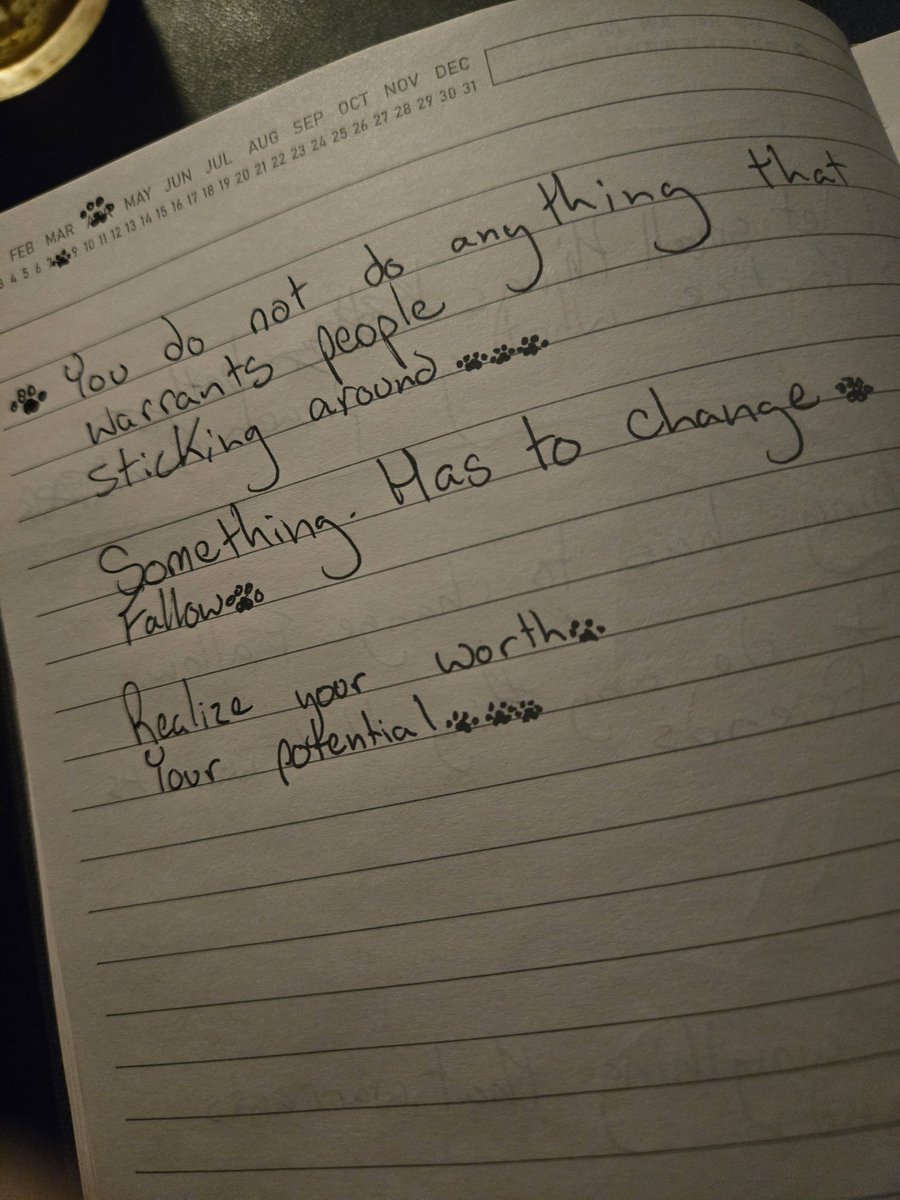 FEB MAR MAY JUN JUL AUG SEP OCT NOV DEC
3 4 5 6 7 9 10 11 12 13 14 15 16 17 18 19 20 21 22 23 24 25 26 27 28 29 30 31
You do not do anything that
warrants people
sticking around
Something. Has to change
Fallow
Realize your worth
Your potential